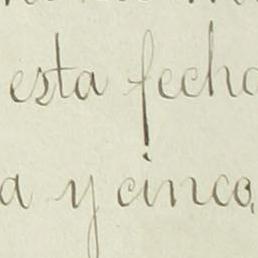 esta fecha
a y cinco,